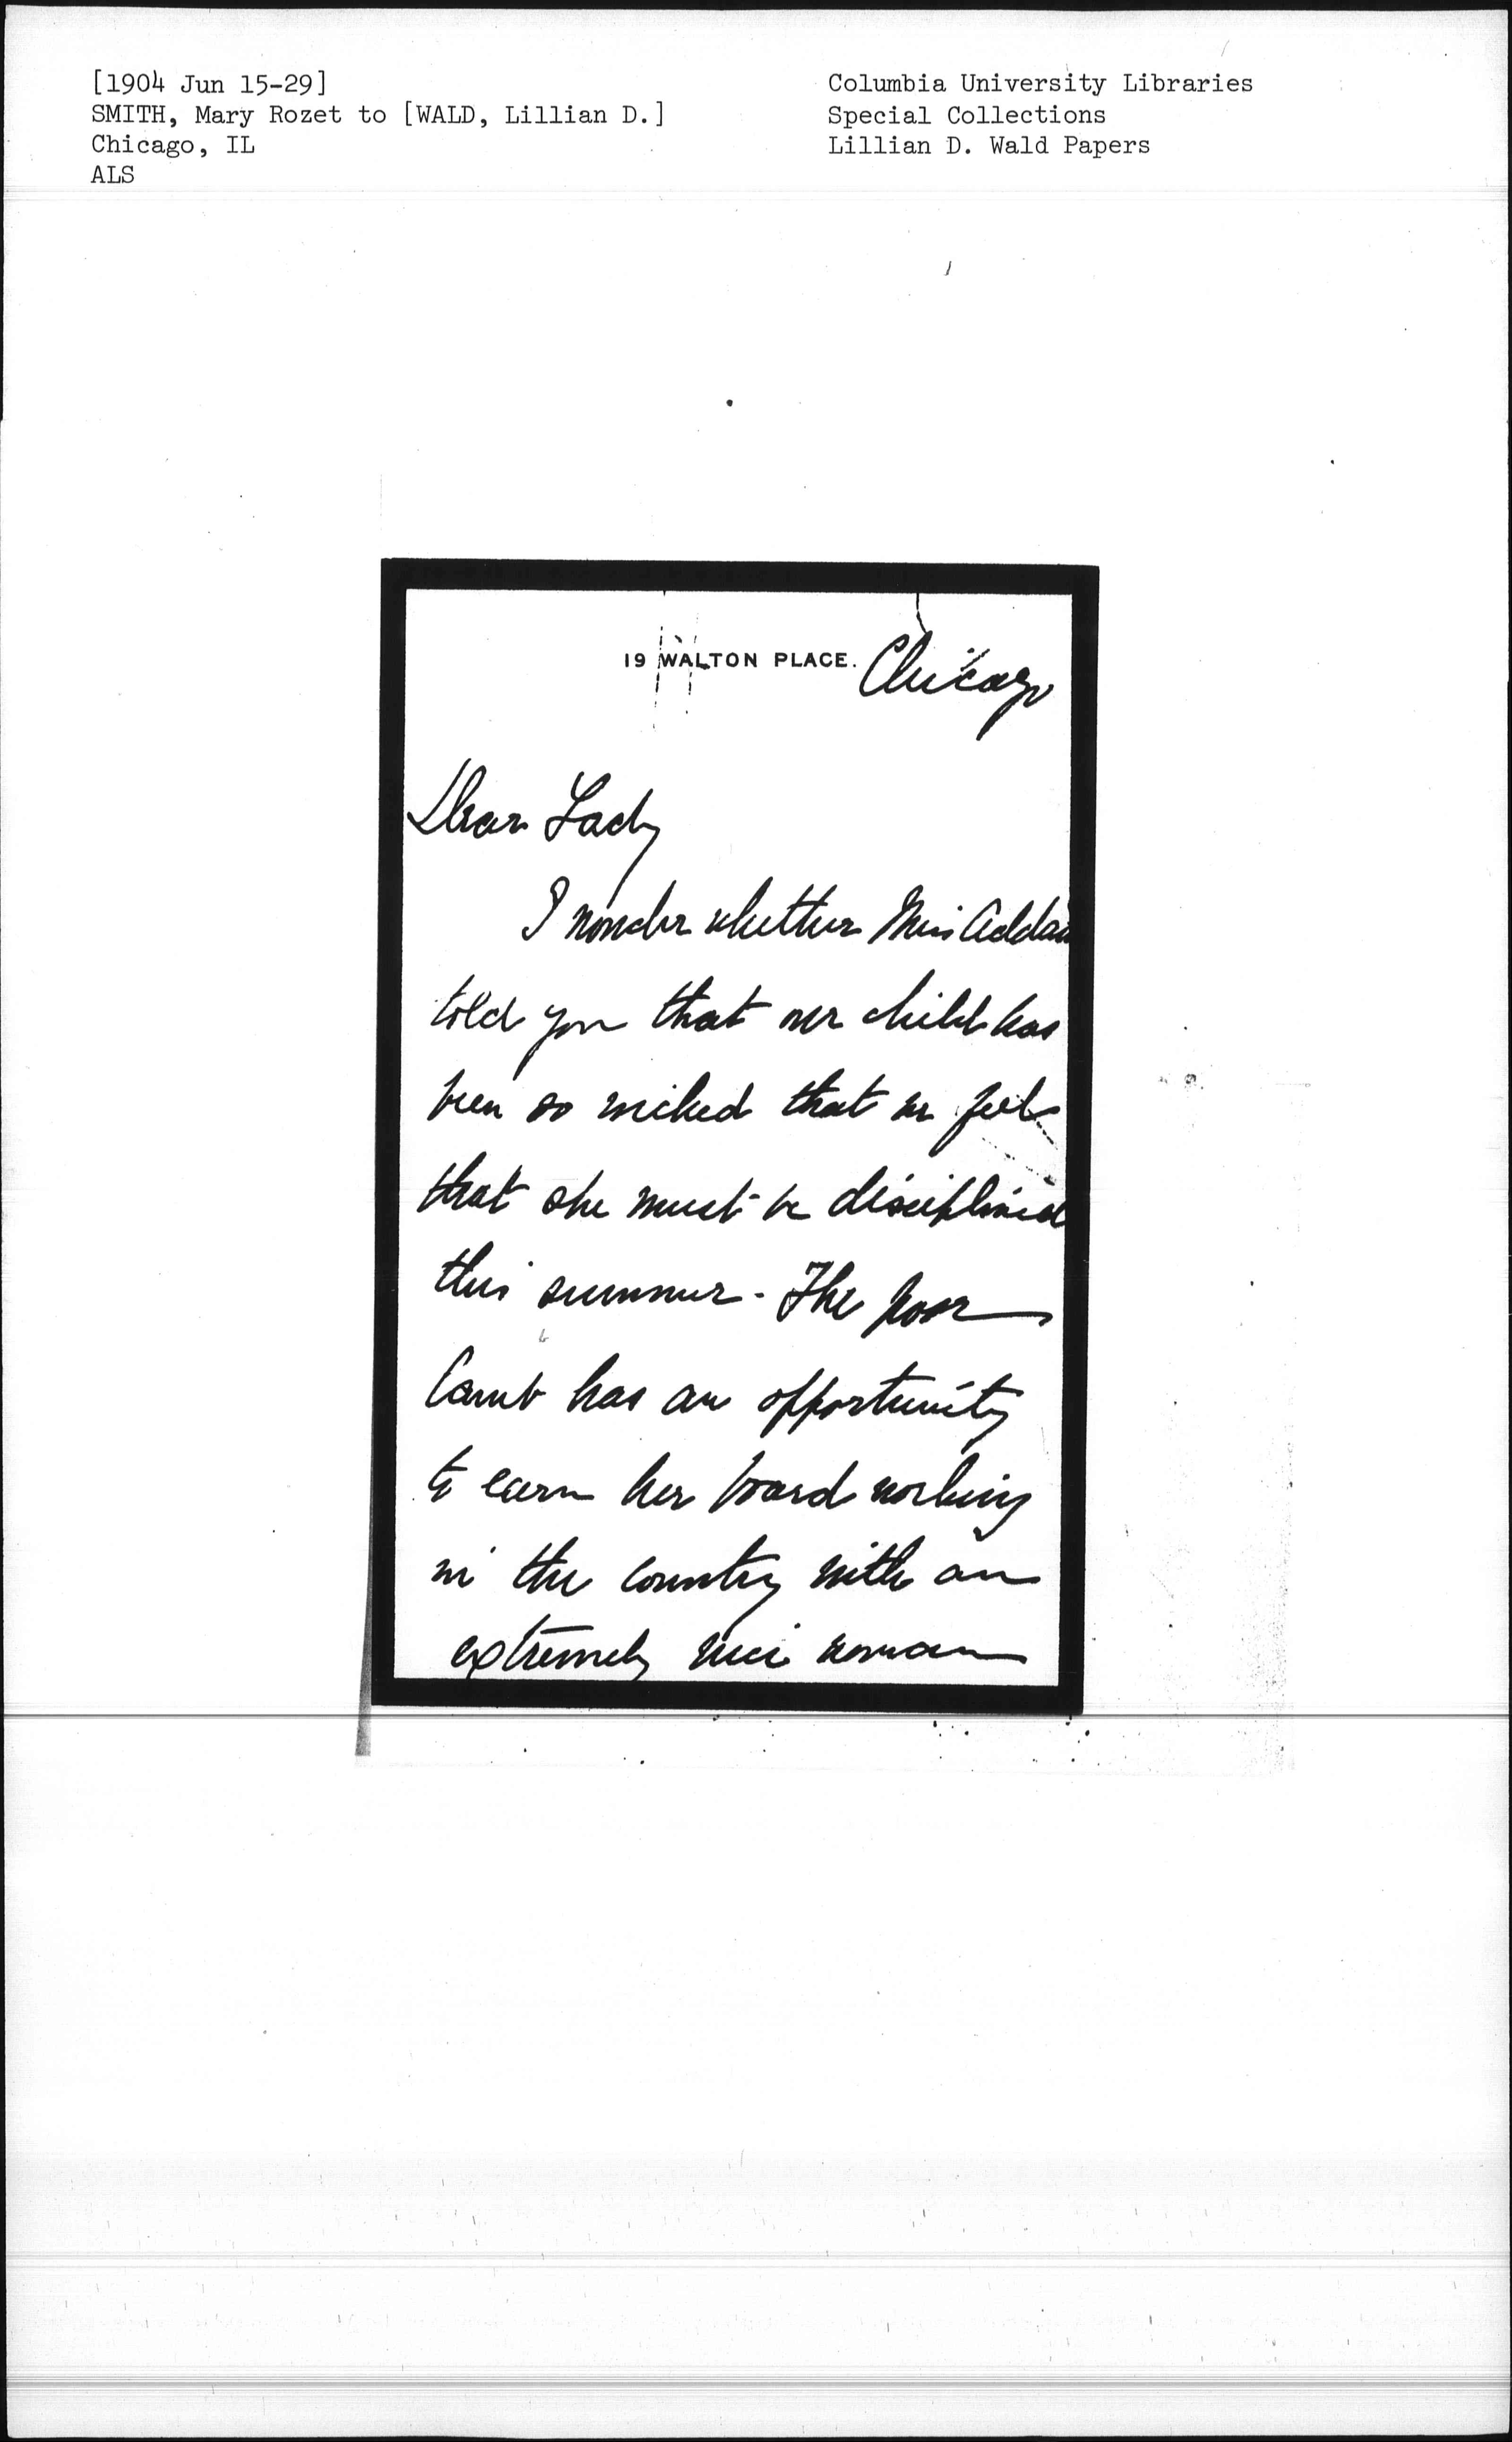 [1904 Jun 15-29]
SMITH, Mary Rozet to [WALD, Lillian D.]
Chicago, IL
ALS
Columbia University Libraries
Special Collections
Lillian D. Wald Papers
19 WALTON PLACE. Chicago
Dear Lady
I wonder whether Miss Addams
told you that our child has
been so wicked that we feel
that she must be disciplined
this summer - The poor
lamb has an opportunity
to earn her board working
in the country with an
extremely nice woman